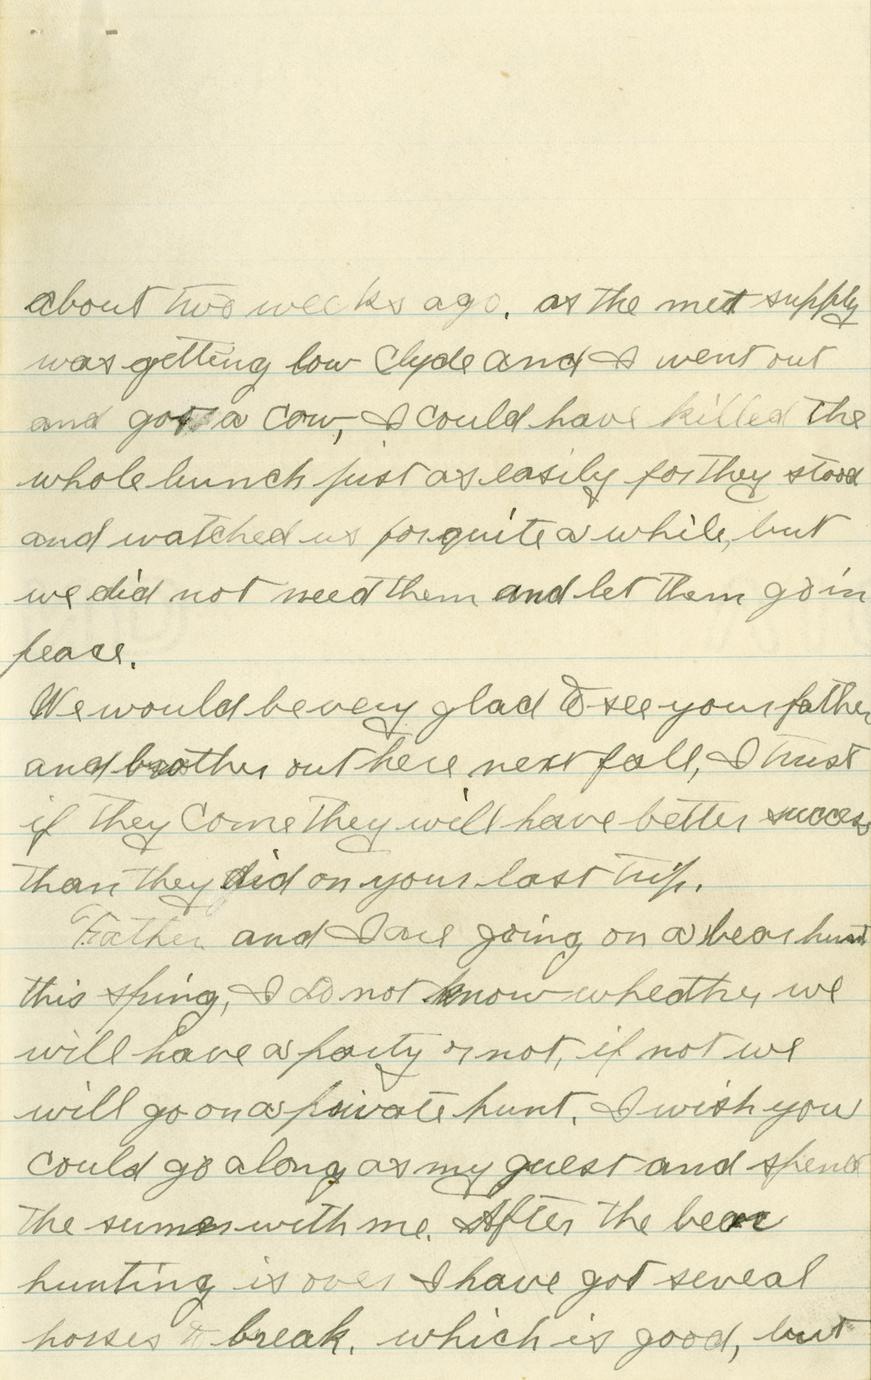 about two weeks ago. as the met supply
was getting low Clyde and I went out
and got a Cow, I could have killed the
whole bunch just as easily for they stood
and watched us for quite a while, but
we did not need them and let them go in
peace.
We would be very glad to see your father
and brother out here next fall, I trust
if they Come they will have better success
than they did on your last trip.
Father and I are going on a bear hunt
this spring, I do not know wheather we
will have a party or not, if not we
will go on a private hunt. I wish you
could go along as my guest and spend
the sumer with me. After the bear
hunting is over I have got seveal
horses to break. which is good, but